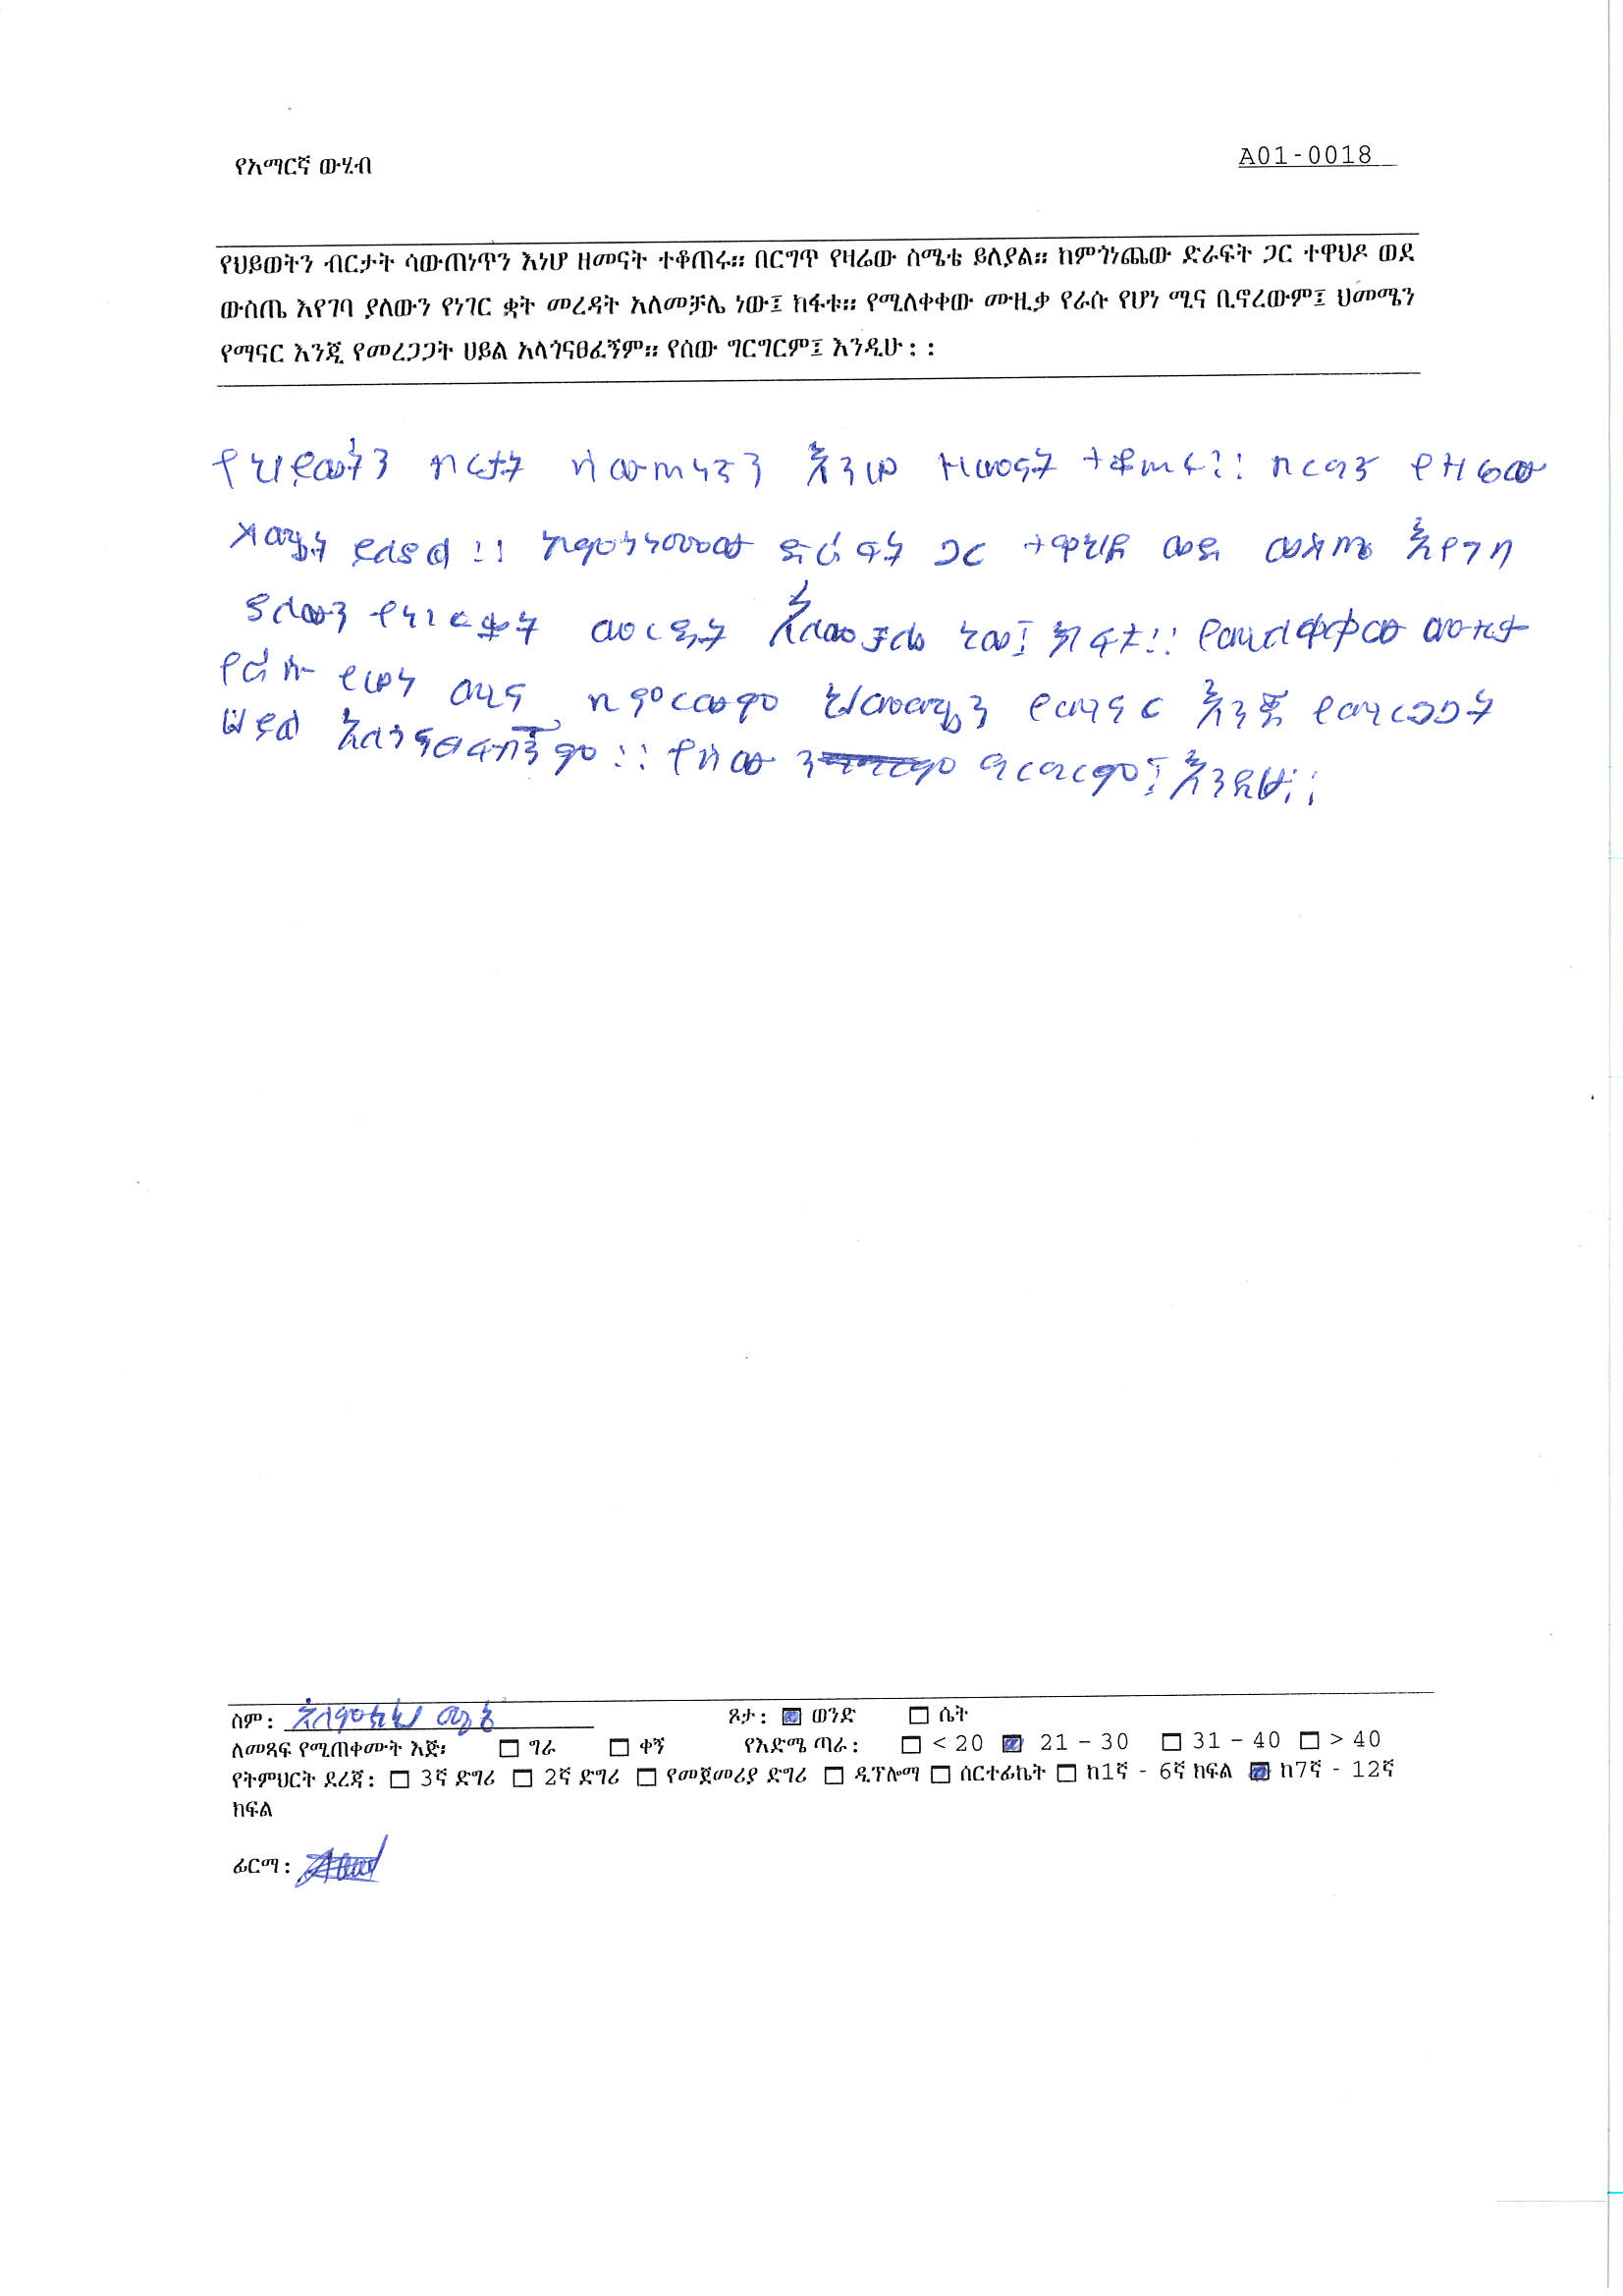 የአማርኛ ውሂብ
A01-0018
የህይወትን ብርታት ሳውጠነጥን እነሆ ዘመናት ተቆጠሩ። በርግጥ የዛሬው ስሜቴ ይለያል። ከምጎነጨው ድራፍት ጋር ተዋህዶ ወደ
ውስጤ እየገባ ያለውን የነገር ቋት መረዳት አለመቻሌ ነው፤ ክፋቱ። የሚለቀቀው ሙዚቃ የራሱ የሆነ ሚና ቢኖረውም፤ ህመሜን
የማናር እንጂ የመረጋጋት ሀይል አላጎናፀፈኝም። የሰው ግርግርም፤ እንዲሁ::
የህይወትን ብርታት ሳውጠነጥን እንሆ ዘመናት ተቆጠሩ። በርግጥ የዛሬው
ስሜቴ ይለያል። ከምጎነጨው ድራፍት ጋር ተዋህዶ ወደ ውስጤ እየገባ
ያለውን የነገር ቋት መረዳት አለመቻሌ ነው፤ ክፋቱ። የሚለቀቀው ሙዚቃ
የራሱ የሆነ ሚና ህመሜን የማናር እንጂ የመረጋጋት
ሀይል ። የሰው ግርግርም፤ እንዲሁ።
ስም: ጾታ: ወንድ ሴት
ለመጻፍ የሚጠቀሙት እጅ፡ ግራ ቀኝ የእድሜ ጣራ: < 20 21 - 30 31 - 40 > 40
የትምህርት ደረጃ: 3ኛ ድግሪ 2ኛ ድግሪ የመጀመሪያ ድግሪ ዲፕሎማ ሰርተፊኬት ከ1ኛ - 6ኛ ክፍል ከ7ኛ - 12ኛ
ክፍል
ፊርማ: